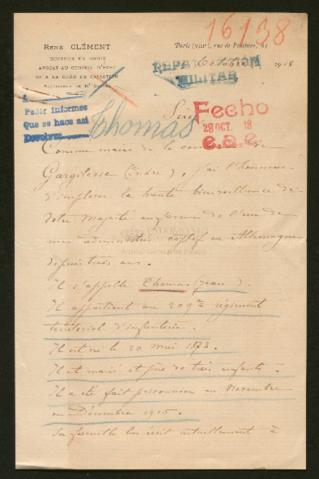 16138
RENÉ CLÉMENT
DOCTEUR EN DROIT
AVOCAT AU CONSEIL D'ÉTAT
ET A LA COUR DE CASSATION
Paris (VIII°), rue de
Octobre 1918
REPATRIACION
MILITAR
Pedir informes
Que se haga asi
Devolver
Thomas
Sire
Fecho
28 OCT. 18
e.a.e.
Comme maire de la
Gargilesse (Indre), j'ai l'honneur
d'implorer la haute bienveillance de
Votre Majesté en faveur de l'un de
mes administrés captif en Allemagne
depuis trois ans.
Il s'appelle Thomas (Jean).
Il appartient au 209e régiment
territorial d'infanterie.
Il est né le 20 mai 1873.
Il est marié et père de trois enfants.
Il a été fait prisonnier en Novembre
ou Décembre 1915.
Sa famille lui écrit actuellement à